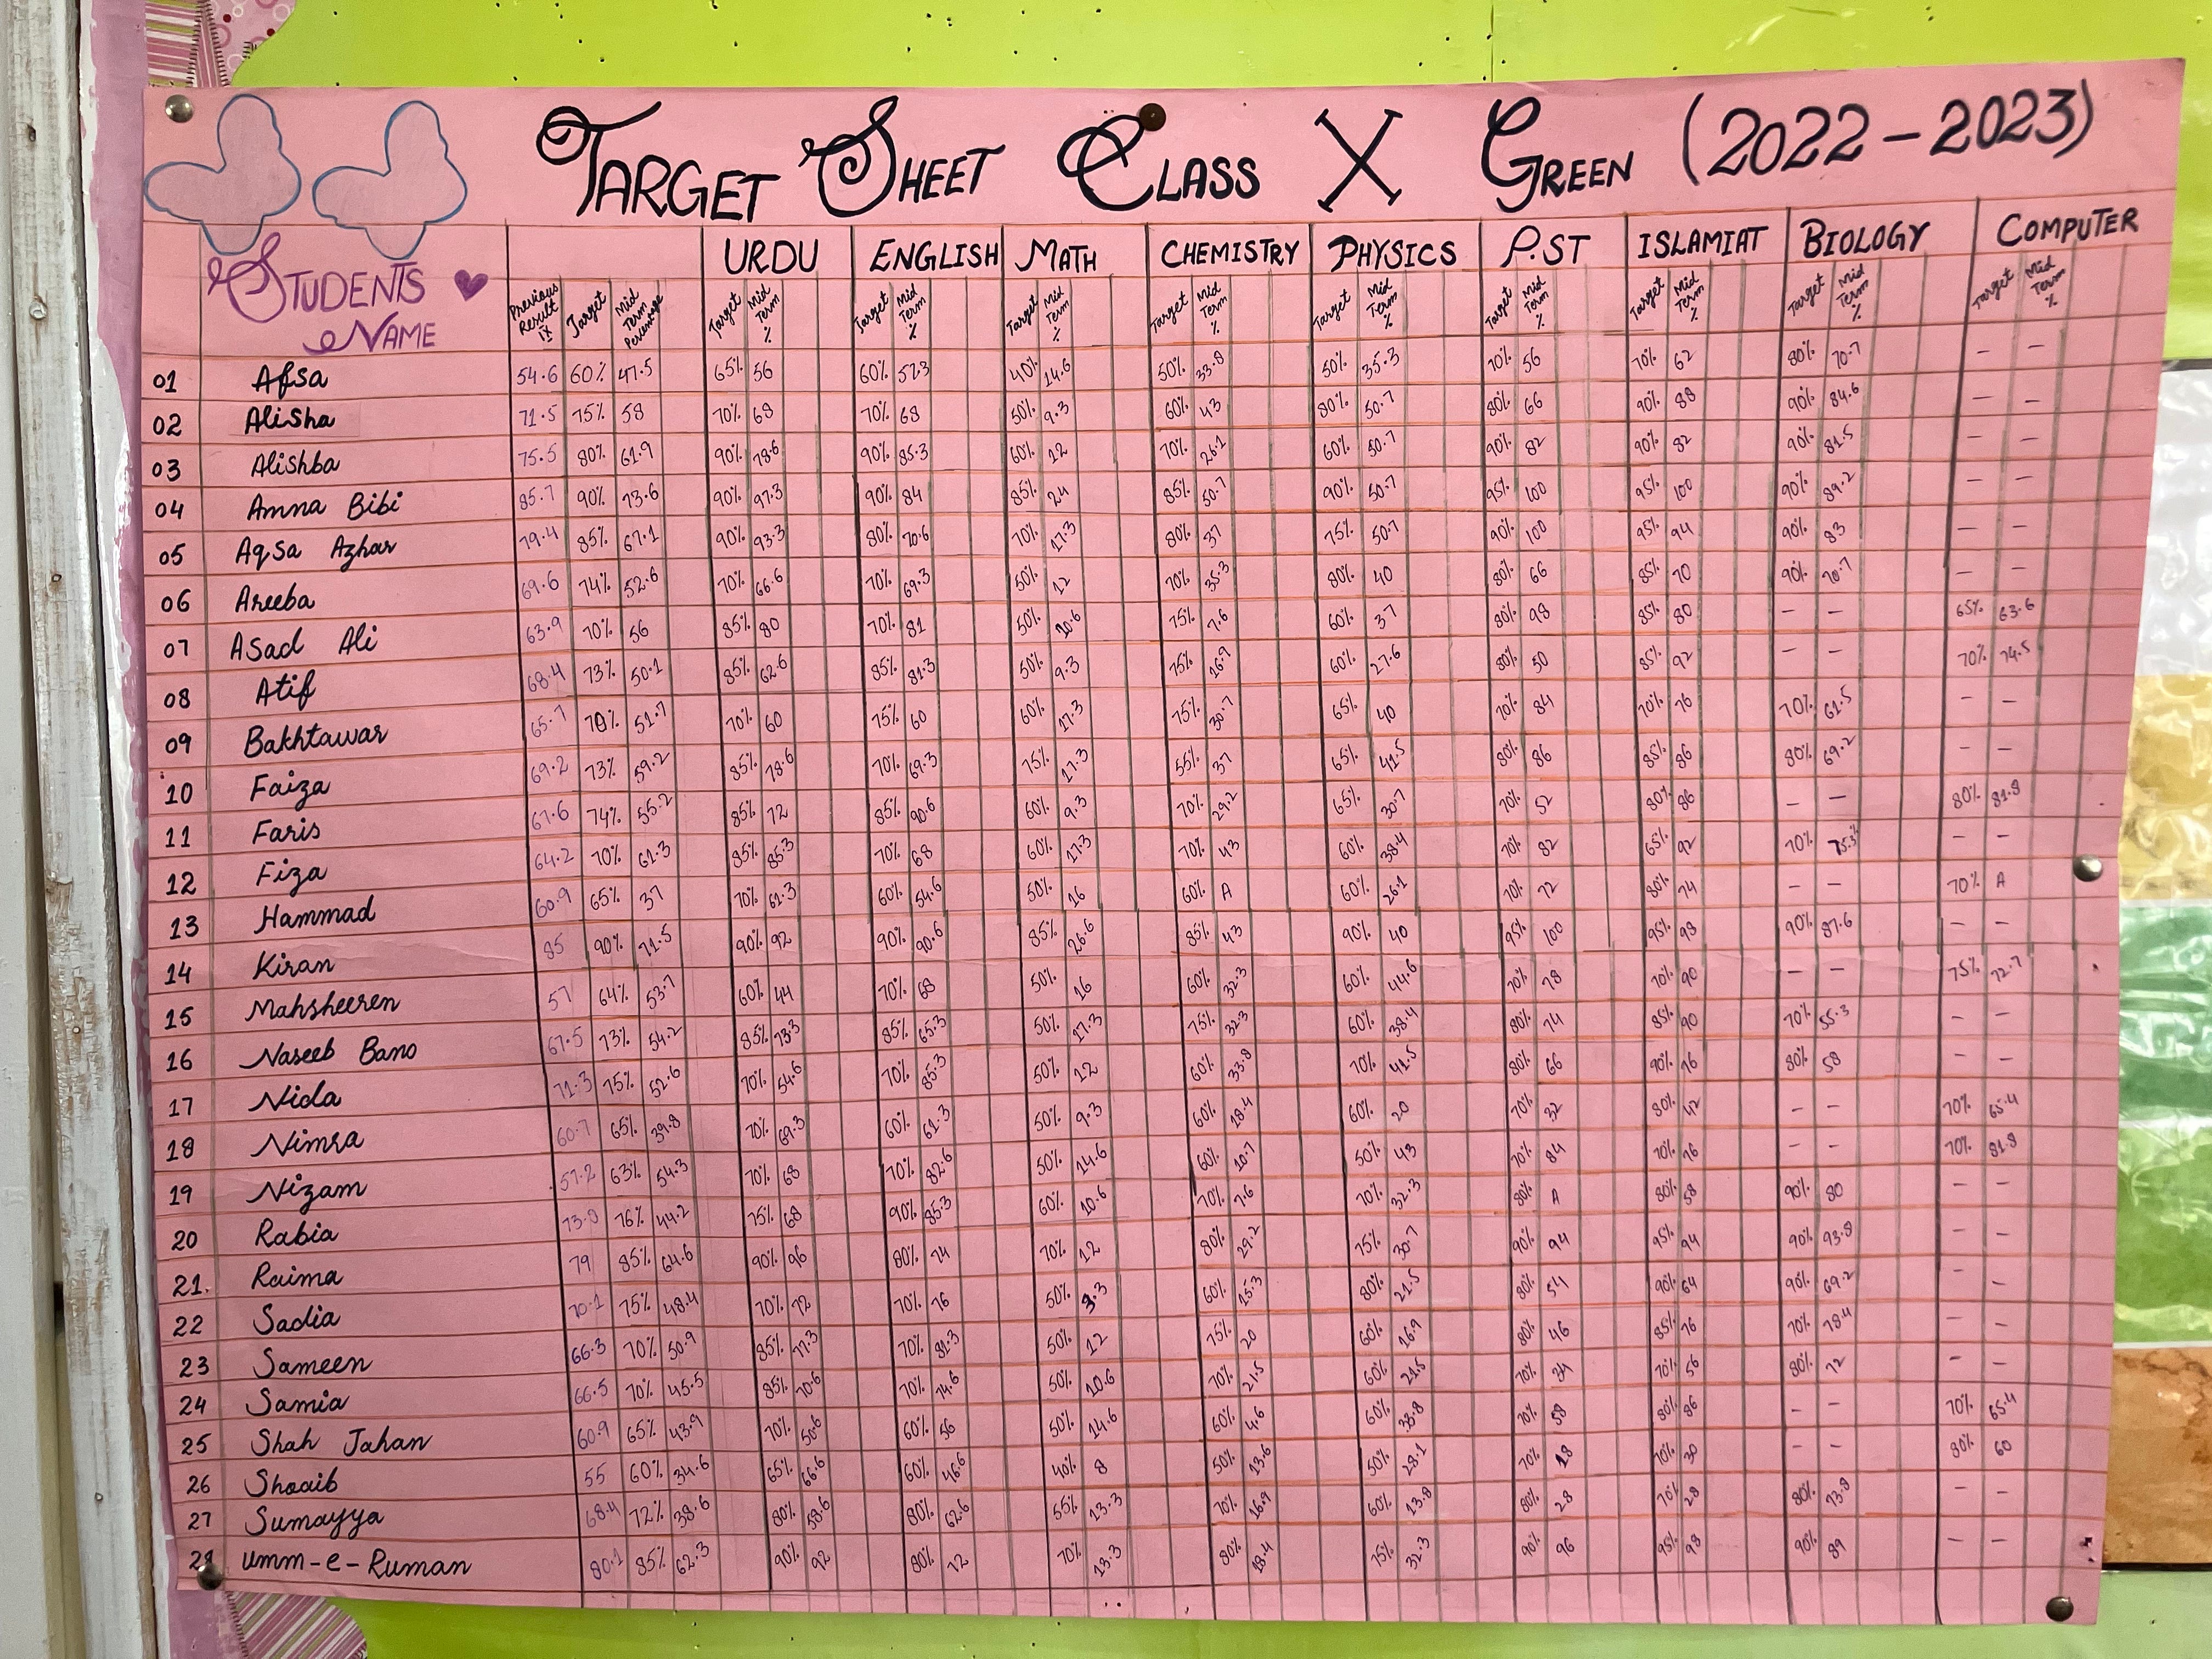 TARGET SHEET CLASS X GREEN (2022-2023)
STUDENTS NAME URDU ENGLISH MATH CHEMISTRY PHYSICS P.ST ISLAMIAT BIOLOGY COMPUTER
Previous Result IX Target Mid Term Percentage Target Mid Term % Target Mid Term % Target Mid Term % Target Mid Term % Target Mid Term % Target Mid Term % Target Mid Term % Target Mid Term % Target Mid Term %
01 Afsa 54.6 60% 47.5 65% 56 60% 57.3 40% 14.6 50% 33.8 50% 35.3 70% 56 70% 62 80% 70.7 - -
02 Alisha 71.5 75% 58 70% 68 70% 68 50% 9.3 60% 43 80% 50.7 80% 66 90% 88 90% 84.6 - -
03 Alishba 75.5 80% 61.9 90% 78.6 90% 85.3 60% 12 70% 26.1 60% 50.7 90% 82 90% 82 90% 81.5 - -
04 Amna Bibi 85.7 90% 73.6 90% 97.3 90% 84 85% 24 85% 50.7 90% 50.7 95% 100 95% 100 90% 89.2 - -
05 Aqsa Azhar 79.4 85% 67.1 90% 93.3 80% 70.6 70% 17.3 80% 37 75% 50.7 90% 100 95% 94 90% 83 - -
06 Areeba 69.6 74% 52.6 70% 66.6 70% 69.3 50% 12 70% 35.3 80% 40 80% 66 85% 70 90% 70.7 - -
07 Asad Ali 63.9 70% 56 85% 80 70% 81 50% 10.6 75% 7.6 60% 37 80% 98 85% 80 - - 65% 63.6
08 Atif 68.4 73% 50.1 85% 62.6 85% 81.3 50% 9.3 75% 16.9 60% 27.6 80% 50 85% 92 - - 70% 74.5
09 Bakhtawar 65.7 70% 51.7 70% 60 75% 60 60% 17.3 75% 30.7 65% 40 70% 84 70% 76 70% 61.5 - -
10 Faiza 69.2 73% 59.2 85% 78.6 70% 69.3 75% 17.3 55% 37 65% 41.5 80% 86 85% 86 80% 69.2 - -
11 Faris 67.6 74% 55.2 85% 72 85% 90.6 60% 9.3 70% 29.2 65% 30.7 70% 52 80% 86 - - 80% 81.8
12 Fiza 64.2 70% 61.3 85% 85.3 70% 68 60% 17.3 70% 43 60% 38.4 70% 82 65% 92 70% 75.3% - -
13 Hammad 60.9 65% 37 70% 61.3 60% 54.6 50% 16 60% A 60% 26.1 70% 72 80% 74 - - 70% A
14 Kiran 85 90% 71.5 90% 92 90% 90.6 85% 26.6 85% 43 90% 40 95% 100 95% 98 90% 87.6 - -
15 Mahsheeren 57 64% 53.7 60% 44 70% 68 50% 16 60% 32.3 60% 44.6 70% 78 70% 90 - - 75% 72.7
16 Naseeb Bano 67.5 73% 54.2 85% 73.3 85% 65.3 50% 17.3 75% 32.3 60% 38.4 80% 74 85% 90 70% 55.3 - -
17 Nida 71.3 75% 52.6 70% 54.6 70% 85.3 50% 12 60% 33.8 70% 41.5 80% 66 90% 76 80% 58 - -
18 Nimra 60.7 65% 39.8 70% 69.3 60% 61.3 50% 9.3 60% 18.4 60% 20 70% 32 80% 42 - - 70% 65.4
19 Nizam 57.2 63% 54.3 70% 68 70% 82.6 50% 14.6 60% 10.7 50% 43 70% 84 70% 76 - - 70% 81.8
20 Rabia 73.8 76% 44.2 75% 68 90% 85.3 60% 10.6 70% 7.6 70% 32.3 80% A 80% 58 90% 80 - -
21. Raima 79 85% 64.6 90% 96 80% 74 70% 12 80% 29.2 75% 30.7 90% 94 95% 94 90% 93.8 - -
22 Sadia 70.1 75% 48.4 70% 72 70% 76 50% 9.3 60% 15.3 80% 21.5 80% 54 90% 64 90% 69.2 - -
23 Sameen 66.3 70% 50.9 85% 77.3 70% 81.3 50% 12 75% 20 60% 16.9 80% 46 85% 76 70% 78.4 - -
24 Samia 66.5 70% 45.5 85% 70.6 70% 74.6 50% 10.6 70% 21.5 60% 21.5 70% 34 70% 56 80% 72 - -
25 Shah Jahan 60.9 65% 43.9 70% 50.6 60% 56 50% 14.6 60% 4.6 60% 33.8 70% 58 80% 86 - - 70% 65.4
26 Shoaib 55 60% 34.6 65% 66.6 60% 46.6 40% 8 50% 13.6 50% 23.1 70% 18 70% 30 - - 80% 60
27 Sumayya 68.4 72% 38.6 80% 58.6 80% 62.6 55% 13.3 70% 16.9 60% 13.8 80% 28 70% 28 80% 73.8 - -
28 Umm-e-Ruman 80.1 85% 62.3 90% 92 80% 72 70% 13.3 80% 18.4 75% 32.3 90% 96 95% 98 90% 89 - -